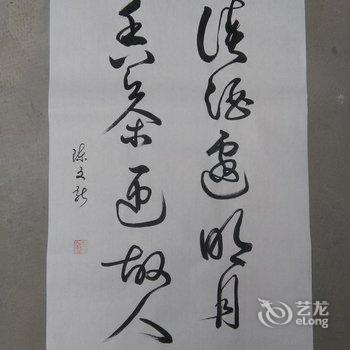 酒邀明月
香茶迎故人
陈文
艺龙
eLong